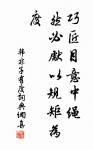 巧匠目意中绳
然必献以规矩为
度
韩非子有度词典网嘉